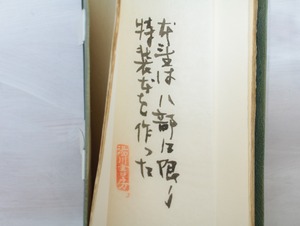 本書は八部に限り
特装本を作った